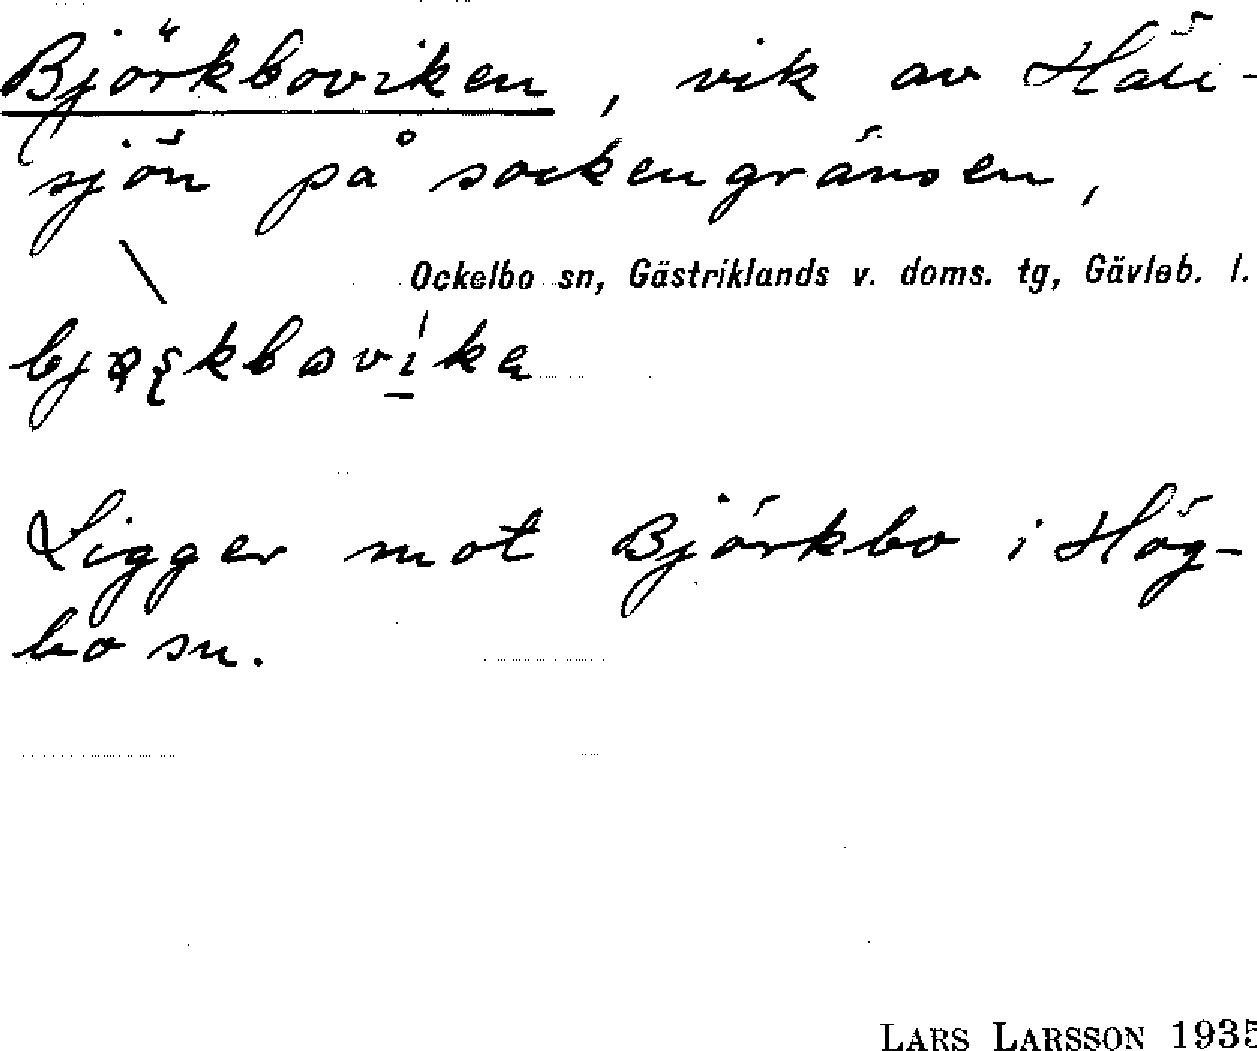 Björkboviken, vik av
sjön på sockengränsen,
Ockelbo sn, Gästriklands v. doms. tg, Gävleb. l.
Ligger mot Björkbo i Hög-
bo sn.
LARS LARSSON 1935